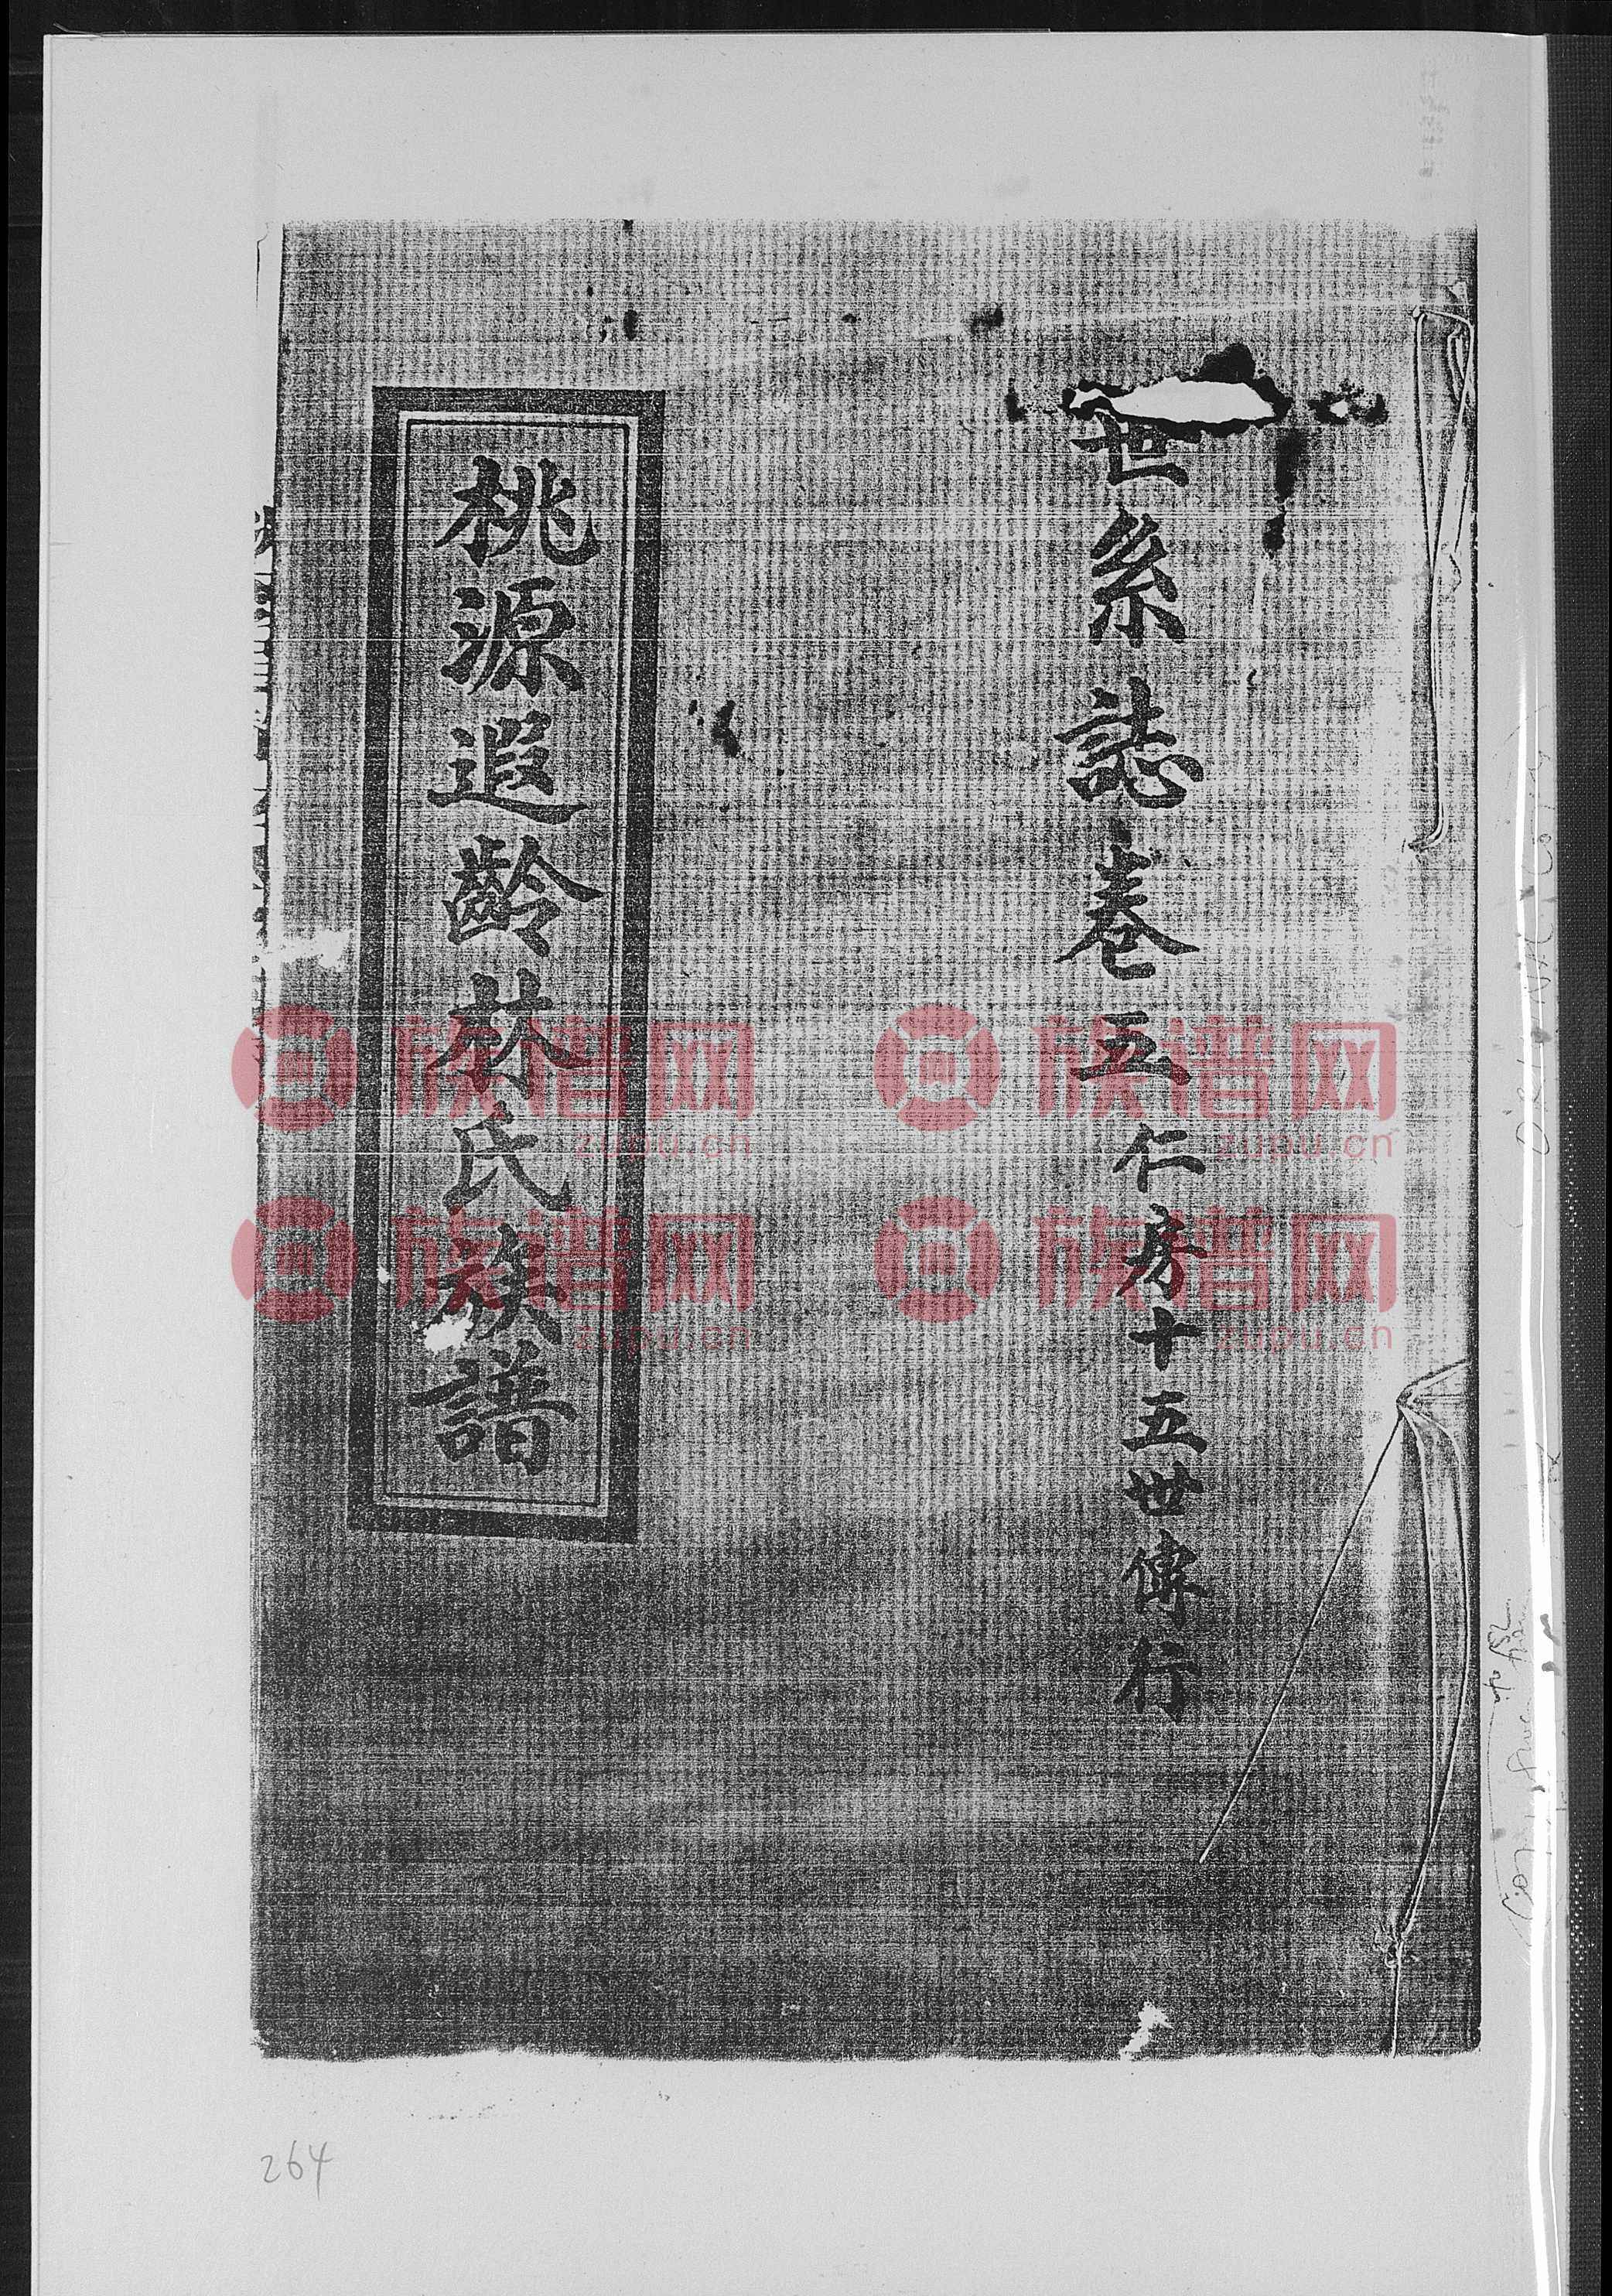 世系誌卷五仁房十五世傳行
桃源遐齡林氏族譜
族谱网 族谱网
zupu.cn zupu.cn
族谱网 族谱网
zupu.cn zupu.cn
264